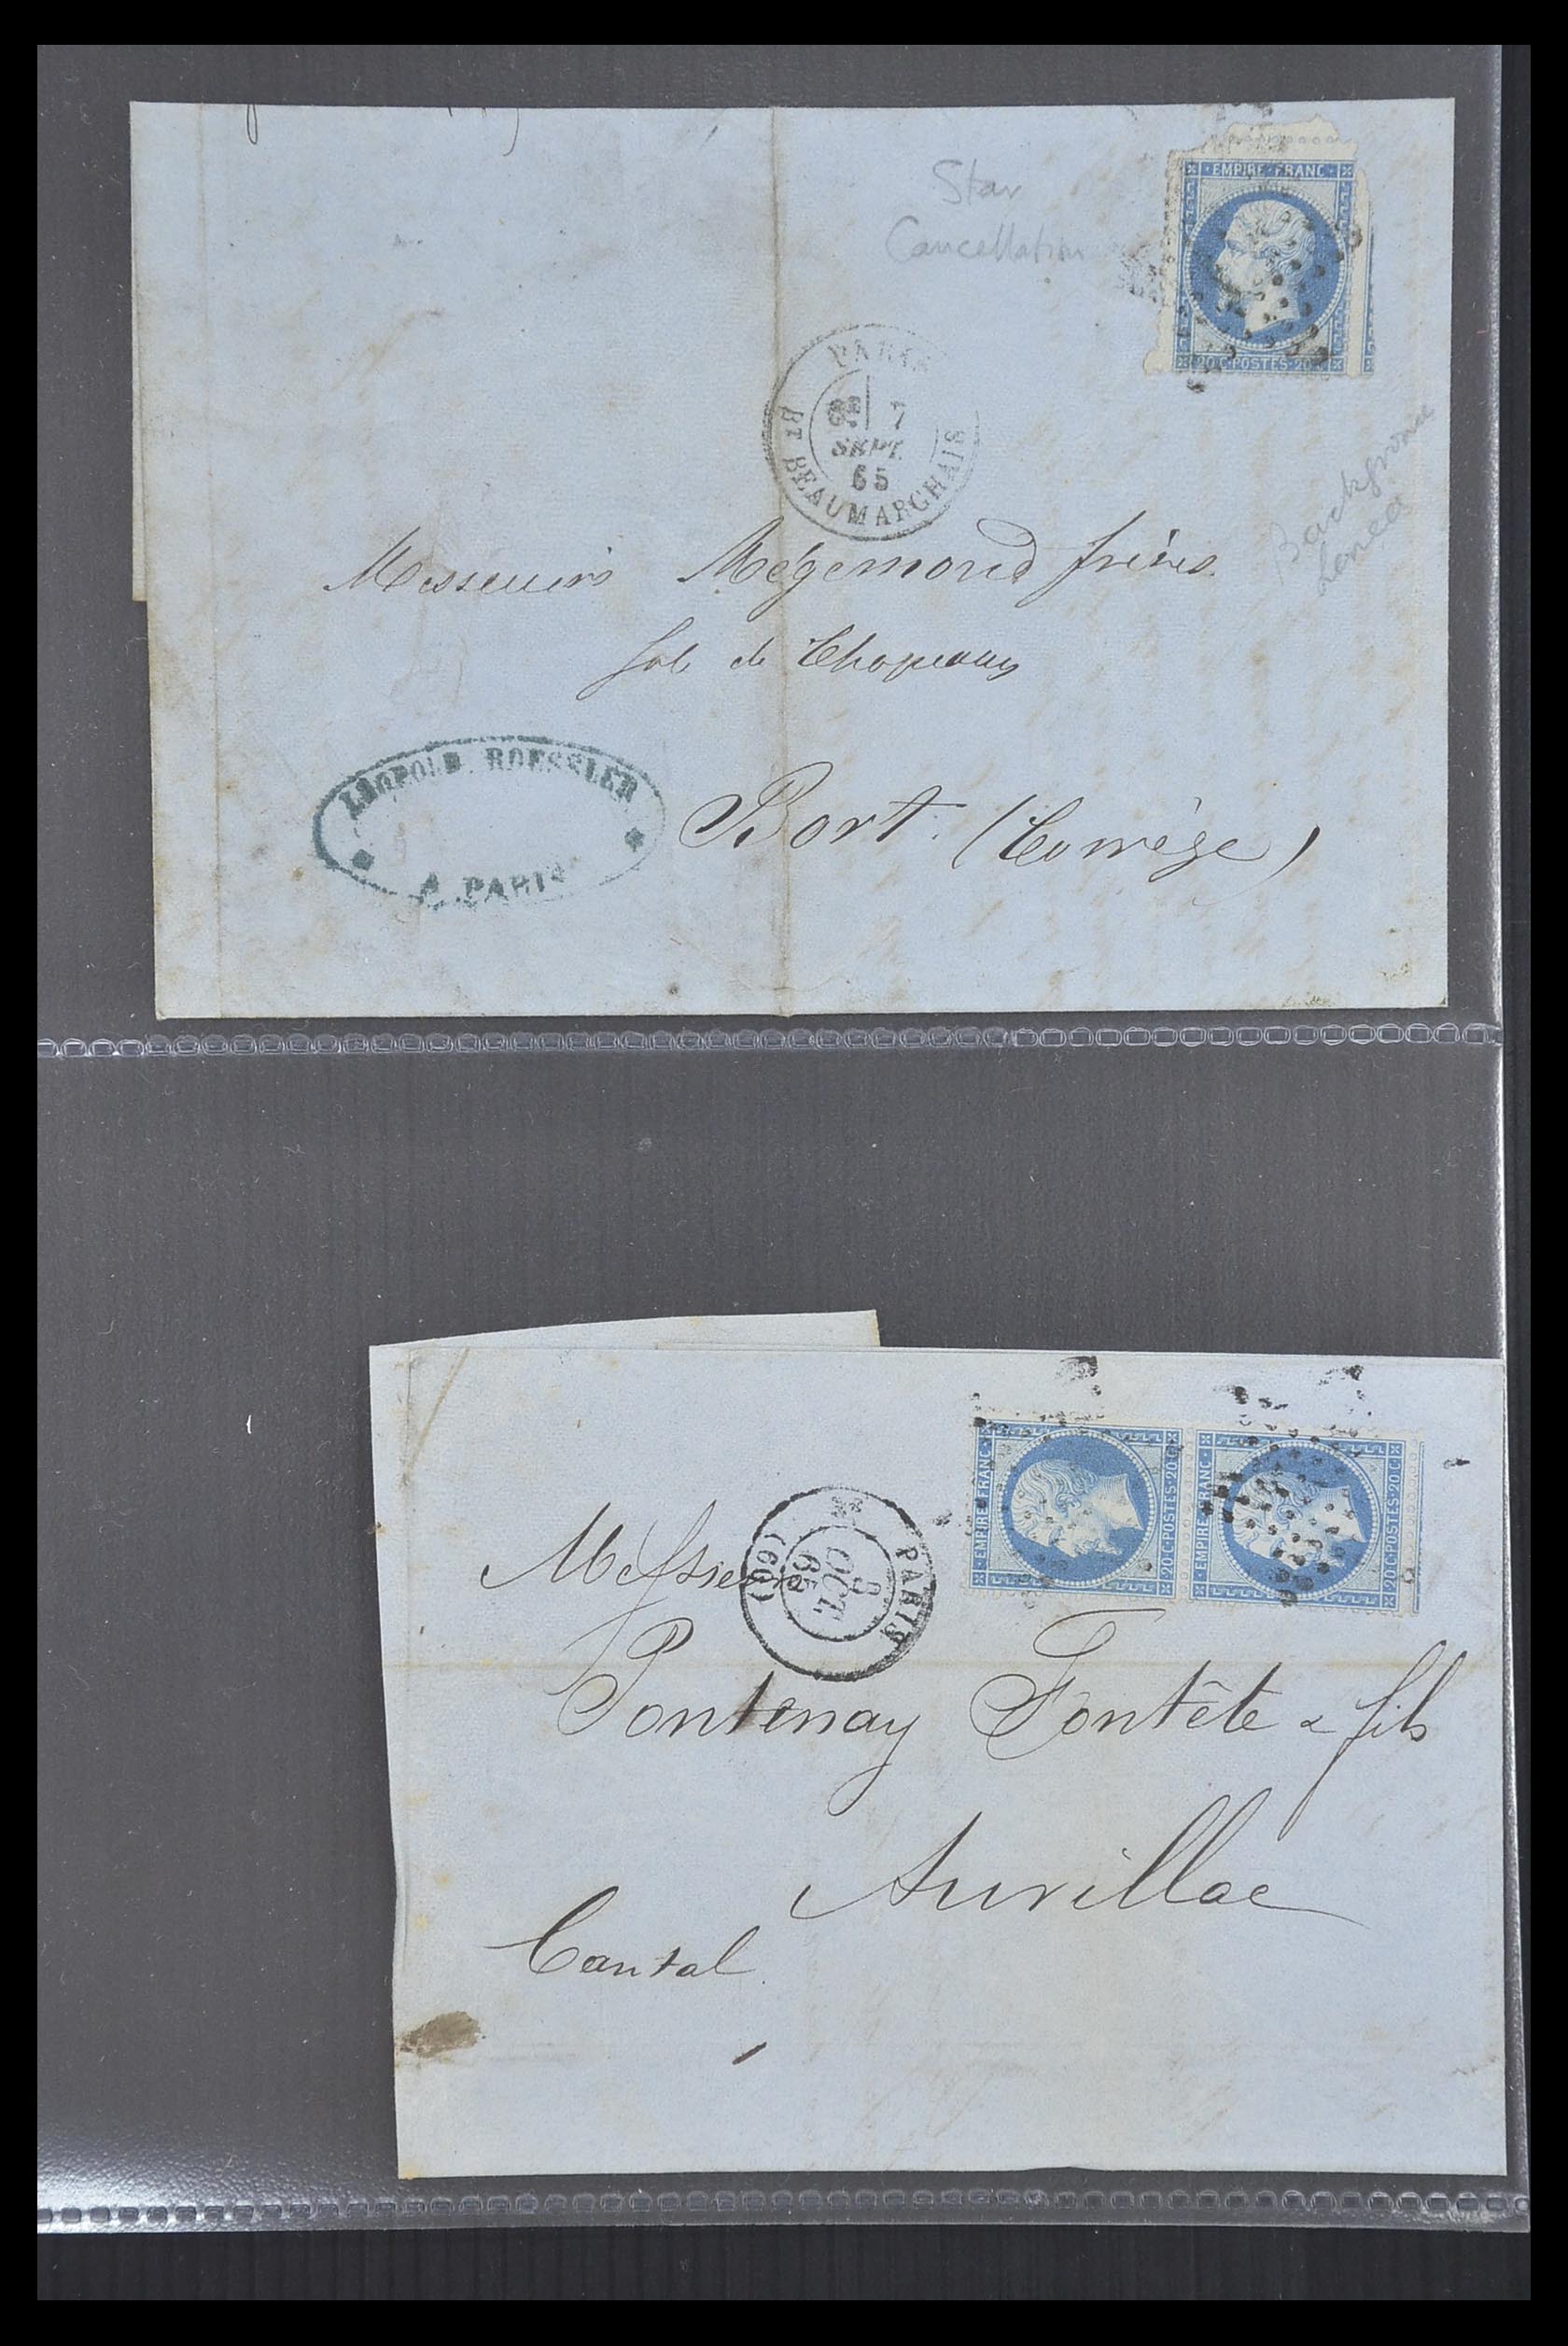 Star
Cancellation
EMPIRE FRANC
20 C POSTES 20 C
PARIS
7
SEPT.
65
BT BEAUMARCHAIS
Messieurs Mégemond frères
fab de Chapeaux
LEOPOLD ROESSLER
A PARIS
Bort. (Corrèze)
EMPIRE FRANC
20 C POSTES 20 C
EMPIRE FRANC
20 C POSTES 20 C
PARIS
8
OCT.
65
(60)
Messieurs
Pontenay Fontête & fils
Aurillac
Cantal